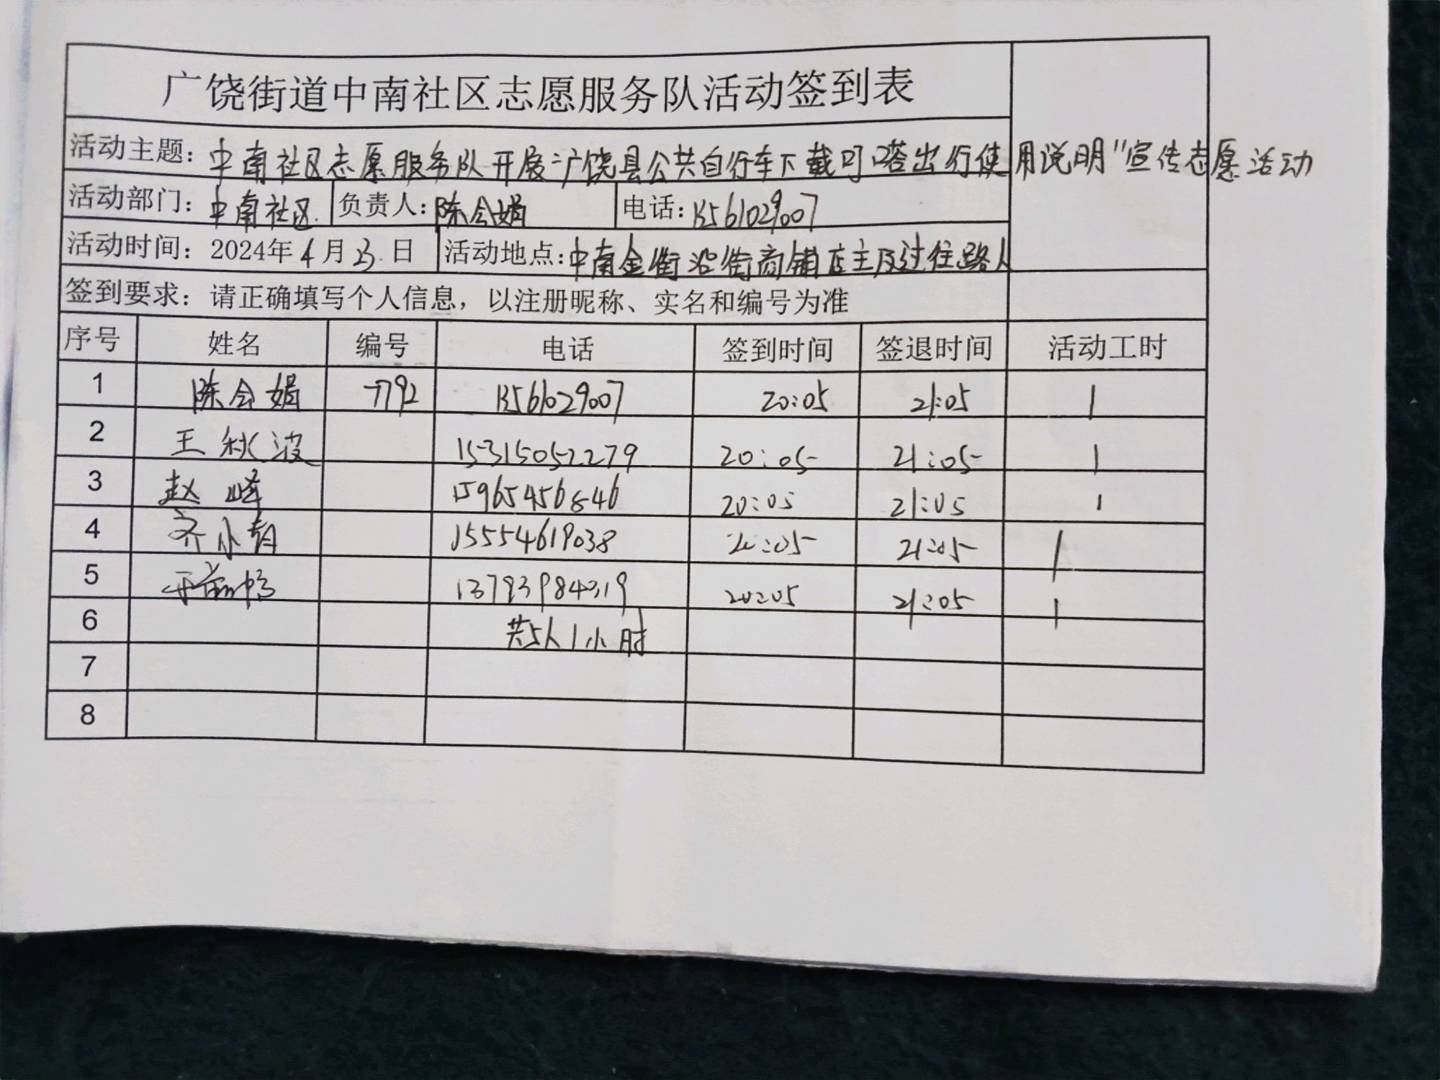 广饶街道中南社区志愿服务队活动签到表
活动主题：中南社区志愿服务队开展"广饶县公共自行车下载叮嗒出行使用说明"宣传志愿活动
活动部门：中南社区 负责人：陈会娟 电话：13561029007
活动时间：2024年4月23日 活动地点：中南金街沿街商铺店主及过往路人
签到要求：请正确填写个人信息，以注册昵称、实名和编号为准
序号 姓名 编号 电话 签到时间 签退时间 活动工时
1 陈会娟 7792 13561029007 20:05 21:05 1
2 王秋波 15315052279 20:05 21:05 1
3 赵峰 15965456846 20:05 21:05 1
4 齐小青 15554619038 20:05 21:05 1
5 13793984319 20:05 21:05 1
6 共5人1小时
7
8